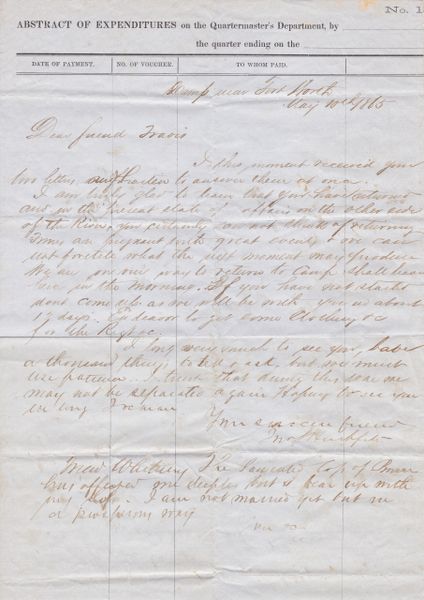 No. 1
ABSTRACT OF EXPENDITURES on the Quartermaster's Department, by
the quarter ending on the
DATE OF PAYMENT. NO. OF VOUCHER. TO WHOM PAID.
Camp near Fort Worth
May 10th 1865
Dear friend Travis
I this moment received your
two letters and hasten to answer them at once.
I am glad to learn that you have returned
and in the present state of affairs on the other side
of the River, you certainly do not think of returning
Times are pregnant with great events & one can
not foretell what the next moment may produce
We are on our way to return to Camp shall
in the morning. If you have not started
dont come up as we will be with you in about
12 days. Endeavor to get some Clothing &c
for the Regt &c.
I long very much to see you, have
a thousand things to ask, but we must
be patient. I trust that during this war we
may not be separated again Hoping to see you
I remain
Your sincere friend
Whitney The
has affected me deeply but I bear up with
my . I am not married yet but in
a prosperous way